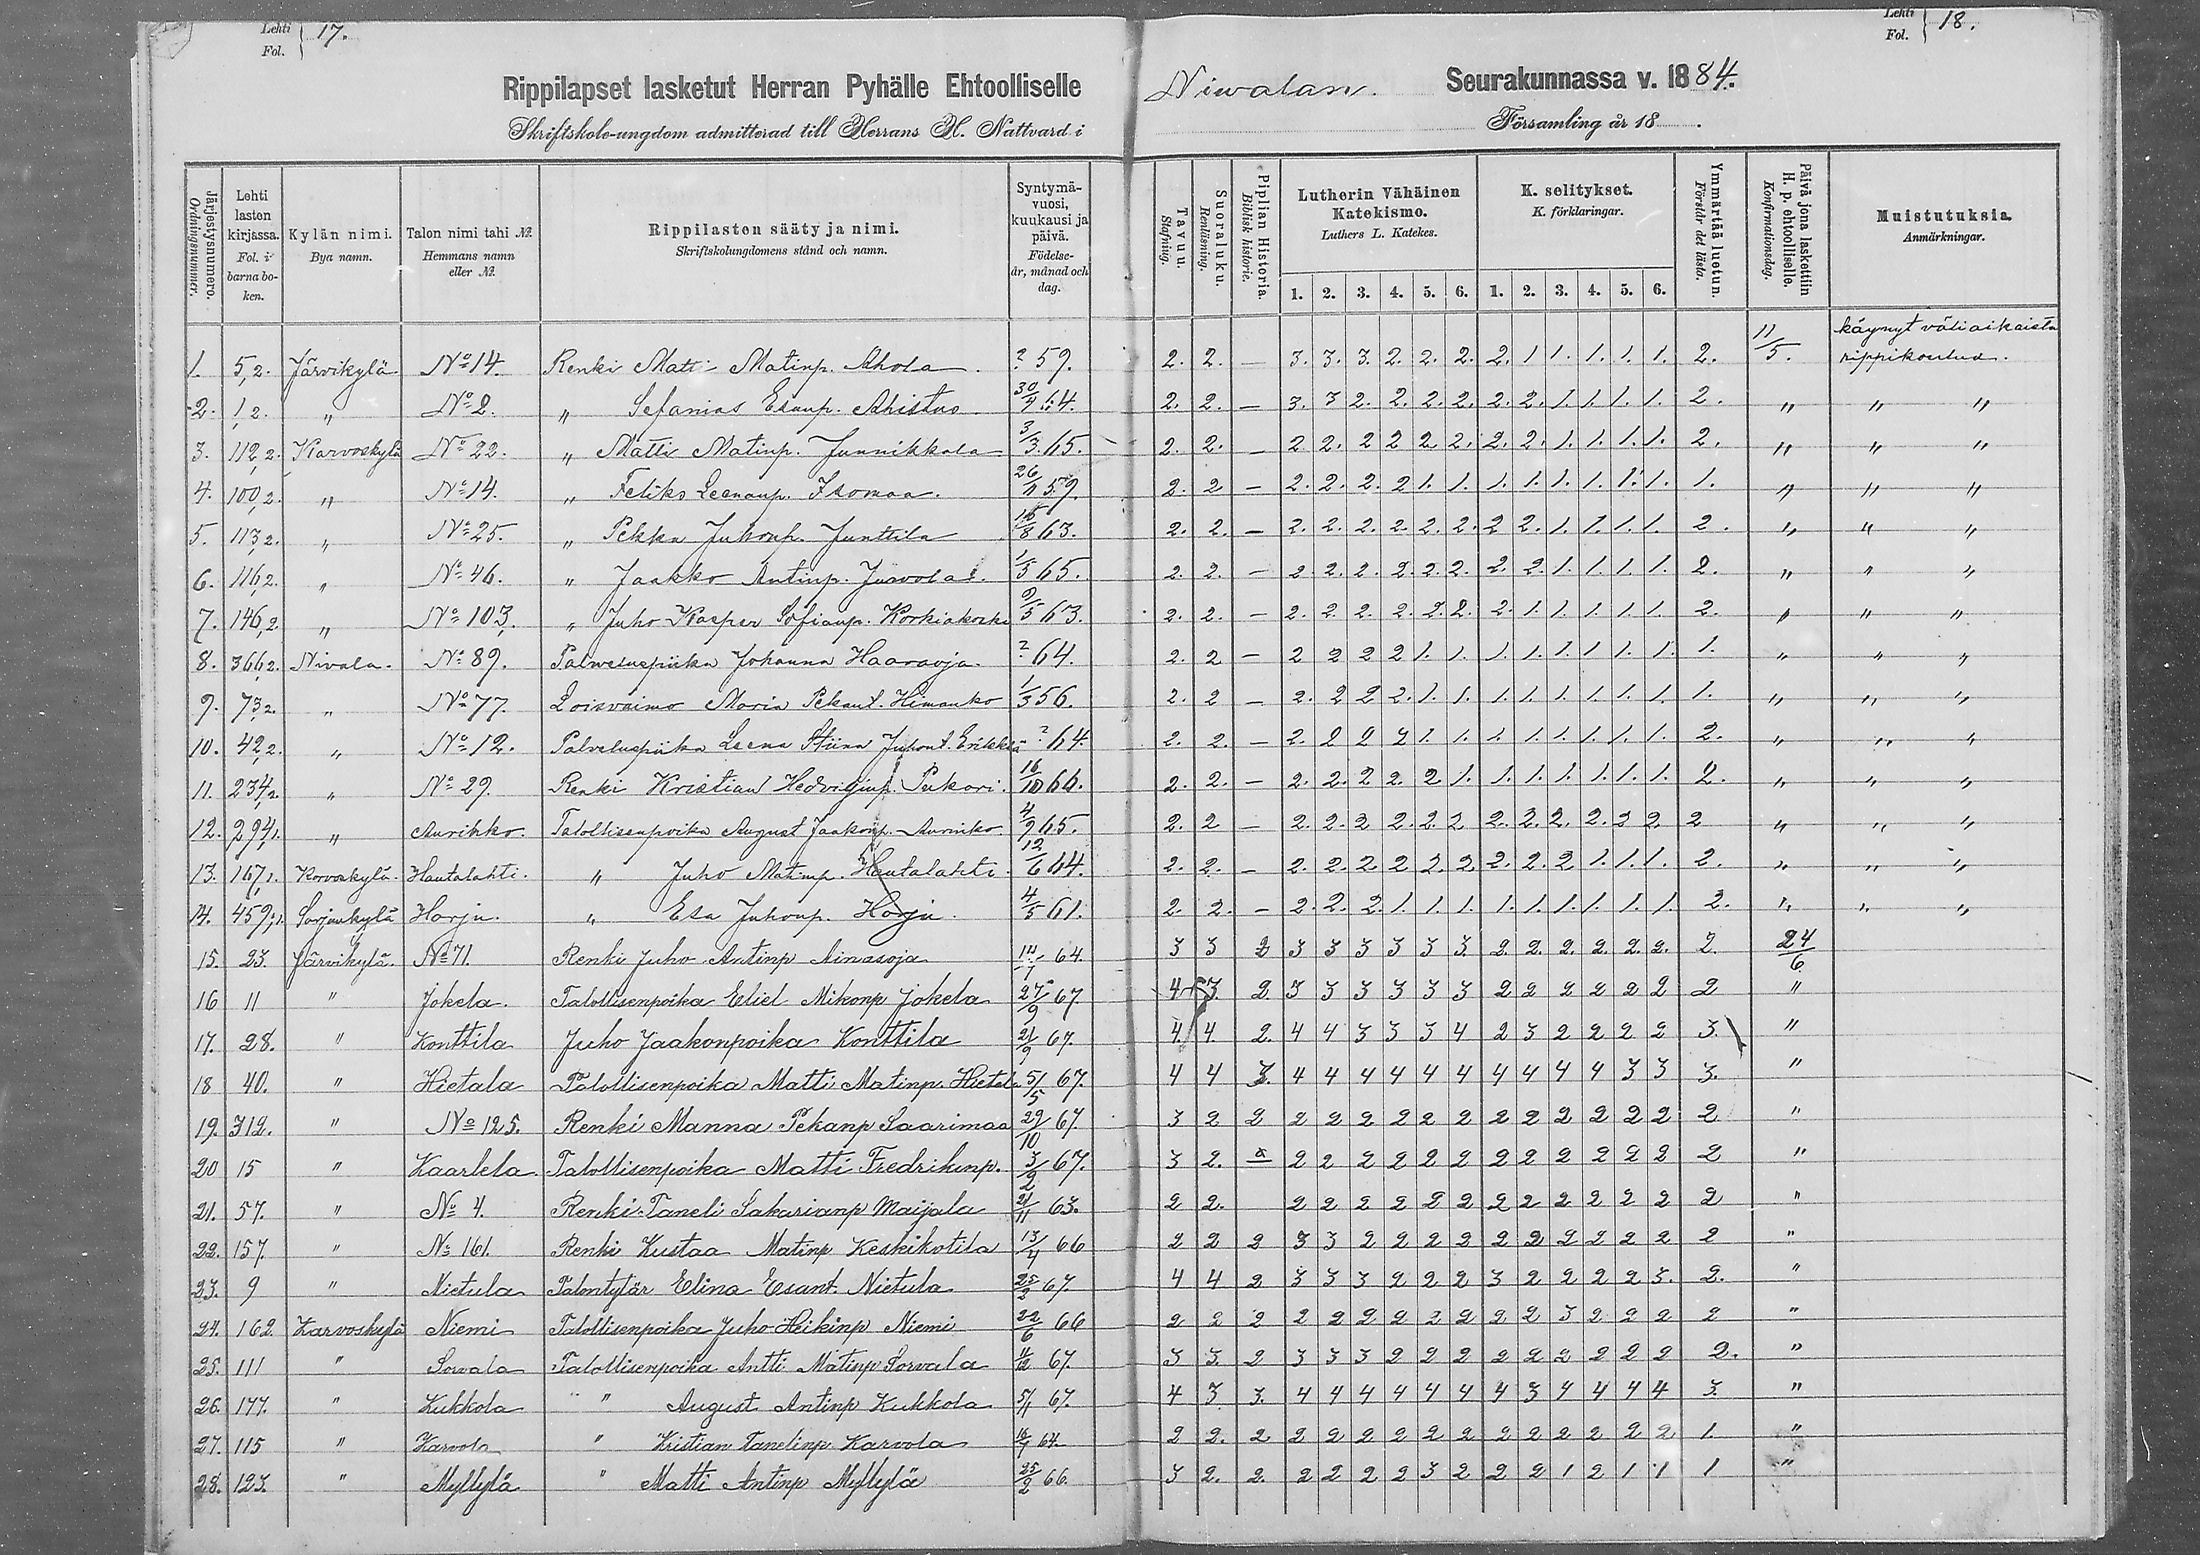 Lehti Fol. } 17.
Lehti Fol. } 18.
Rippilapset lasketut Herran Pyhälle Ehtoolliselle Niwalan. Seurakunnassa v. 1884.
Skriftskole-ungdom admitterad till Herrans H. Nattvard i Församling år 18 .
Järjestysnumero. Ordningsnummer.
Lehti lasten kirjassa. Fol. i barnaboken.
Kylän nimi. Bya namn.
Talon nimi tahi №. Hemmans namn eller №.
Rippilasten sääty ja nimi. Skriftskolungdomens stånd och namn.
Syntymävuosi, kuukausi ja päivä. Födelseår, månad och dag.
Tavuu. Stafning.
Suoraluku. Renläsning.
Piplian Historia. Biblisk historie.
Lutherin Vähäinen Katekismo. Luthers L. Katekes. 1. 2. 3. 4. 5. 6.
K. selitykset. K. förklaringar. 1. 2. 3. 4. 5. 6.
Ymmärtää luetun. Förstår det lästa.
Päivä jona laskettiin H. p. ehtoolliselle. Konfirmationsdag.
Muistutuksia. Anmärkningar.
1. 5,2. Järvikylä No 14. Renki Matti Matinp. Ahola ? 59. 2. 2. — 3. 3. 3. 2. 2. 2. 2. 1 1. 1. 1. 1. 2. 11/5. käynyt väliaikaista rippikoulua.
2. 1,2. " No 2. " Sefanias Esaup. Ahistus 30/4 64. 2. 2. — 3. 3 2. 2. 2. 2. 2. 2. 1. 1. 1. 1. 2. " " "
3. 112,2. Karvoskylä No 22. " Matti Matinp. Junnikkala 3/3 65. 2. 2. — 2 2. 2 2 2 2. 2. 2. 1. 1. 1. 1. 2. " " "
4. 100,2. " No 14. " Feliks Leenanp. Isomaa. 59. 2. 2 — 2. 2. 2. 2 1. 1. 1. 1. 1. 1. 1. 1. 1. " " "
5. 113,2. " No 25. " Pekka Juhonp. Junttila 63. 2. 2. — 2. 2. 2. 2. 2. 2. 2 2. 1. 1. 1. 1. 2. " " "
6. 116,2. " No 46. " Jaakko Antinp. 65. 2. 2. — 2 2. 2. 2. 2. 2. 2. 2 1. 1. 1. 1. 2. " " "
7. 146,2. " No 103. " Juho Kasper Sofianp. Korkiakoski 9/5 63. 2. 2. — 2. 2. 2. 2. 2. 2. 2. 1. 1. 1. 1. 1. 2. " " "
8. 366,2. Nivala. No 89. Palveluspiika Johanna Haaraoja. ? 64. 2. 2 — 2 2 2 2 1. 1. 1. 1. 1. 1. 1. 1. 1. " " "
9. 73,2. " No 77. Loisvaimo Maria Pekant. Himanko 1/3 56. 2. 2 — 2. 2 2 2. 1. 1. 1. 1. 1. 1. 1. 1. 1. " " "
10. 42,2. " No 12. Palveluspiika Leena Stiina Juhont. ? 64. 2. 2. — 2. 2 2 2 1. 1. 1. 1. 1. 1. 1. 1. 2. " " "
11. 234,2. " No 29. Renki Kristian Hedviginp. Pukari. 16/10 66. 2. 2. — 2. 2. 2 2 2 1. 1. 1. 1. 1. 1. 1. 2. " " "
12. 294,1. " Aurikko. Talollisenpoika August Jaakonp. 4/9 65. 2. 2 — 2. 2. 2 2. 2. 2 2. 2. 2. 2. 2 2. 2 " " "
13. 167,1. Karvoskylä. Hautalahti. " Juho Matinp. Hautalahti. 12/6 64. 2. 2. — 2. 2. 2 2 2. 2 2. 2. 2 1. 1. 1. 2. " " "
14. 459,1. Sarjankylä Harju. " Esa Juhonp. Harju. 4/5 61. 2. 2. — 2. 2. 2. 1. 1. 1. 1. 1. 1. 1. 1. 1. 2. " " "
15. 23. Järvikylä. No 71. Renki Juho Antinp Ainasoja 64. 3 3 2 3 3 3 3 3 3. 2. 2. 2. 2. 2. 2. 2. 24/6
16 11 " Jokela. Talollisenpoika Eliel Mikonp Jokela 27/9 67. 4 3. 2. 3 3 3 3 3 3 2 2 2 2 2 2 2 "
17. 28. " Konttila Juho Jaakonpoika Konttila 21/9 67. 4. 4. 2. 4 4 3 3 3 4 2 3 2 2 2 2 3. "
18 40. " Hietala Talollisenpoika Matti Matinp. Hietala 5/5 67. 4 4 3. 4 4 4 4 4 4 4 4 4 4 3 3 3. "
19. 312. " No 125. Renki Manna Pekanp Saarimaa 22/10 67. 3 2 2 2 2 2 2 2 2 2 2 2 2 2 2 2 "
20 15 " Kaarlela Talollisenpoika Matti Fredrikinp. 67. 3 2. 2 2 2 2 2 2 2 2 2 2 2 2 2 2 "
21. 57. " No 4. Renki Taneli Sakarianp Maijala 21/11 63. 2 2. 2 2 2 2 2 2 2 2 2 2 2 2 2 "
22. 157. " No 161. Renki Kustaa Matinp Keskikotila 13/4 66 2 2 2 3 3 2 2 2 2 2 2 2 2 2 2 2 "
23. 9 " Nietula Talontytär Elina Esant. Nietula 25/2 67. 4 4 2 3 3 3 2 2 2 3 2 2 2 2 3. 2. "
24. 162 Karvoskylä Niemi Talollisenpoika Juho Heikinp Niemi 22/6 66 2 2 2 2 2 2 2 2 2 2 2 3 2 2 2 2 "
25. 111 " Sorvala Talollisenpoika Antti Matinp Sorvala 67. 3 3. 2 3 3 3 2 2 2 2 2 2 2 2 2 2. "
26. 177. " Kukkola " August Antinp Kukkola 67. 4 3 3. 4 4 4 4 4 4 4 3 4 4 4 4 3. "
27. 115 " Karvola " Kristian Tanelinp Karvola 64. 2 2. 2 2 2 2 2 2 2 2 2 2 2 2 2 1. "
28. 123. " Myllylä " Matti Antinp Myllylä 25/2 66. 3 2. 2. 2 2 2 2 3 2 2 2 1 2 1 1 1 "